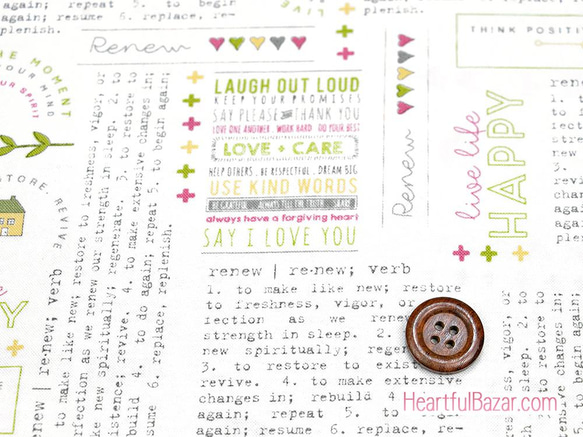 again; repeat 5. to begin
again; resume 6. replace, re-
plenish.
Renew
LIVE
again; repeat 5. to begin
again; resume 6. replace, re-
plenish.
THINK POSITI
THE MOMENT
YOUR MIND
UR SPIRIT
STORE, REVIVE
LAUGH OUT LOUD
KEEP YOUR PROMISES
SAY PLEASE AND THANK YOU
LOVE ONE ANOTHER WORK HARD DO YOUR BEST
LOVE + CARE
HELP OTHERS BE RESPECTFUL DREAM BIG
USE KIND WORDS
BE GRATEFUL ALWAYS TELL THE TRUTH SHARE
always have a forgiving heart
SAY I LOVE YOU
Renew
live life
HAPPY
renew | re·new; verb
1. to make like new; restore
to freshness, vigor, or
fection as we renew our
strength in sleep. 2.
new spiritually; regen
3. to restore to exist
revive. 4. to make extensive
changes in; rebuild
again; repeat 5. to
again; resume 6.
plenish.
renew | re·new; verb
to make like new; restore to freshness, vigor, or
fection as we renew our strength in sleep. 2. to
new spiritually; regenerate. 3. to restore to
existence; revive. 4. to make extensive changes in;
4. to do again; repeat 5. to begin again;
resume 6. to replace, replenish.
HeartfulBazar.com